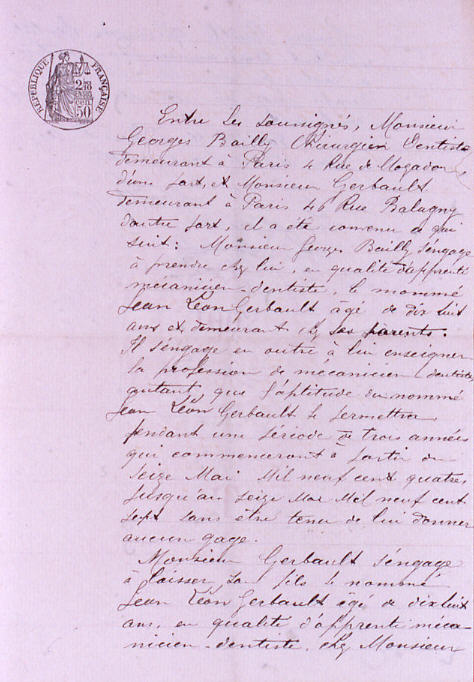 RÉPUBLIQUE FRANÇAISE
50
Entre les soussignés, Monsieur
Georges Bailly Chirurgien Dentiste
demeurant à Paris 4 Rue de Mogador
d'une part, et Monsieur Gerbault
demeurant à Paris 46 Rue Balagny
d'autre part, il a été convenu ce qui
suit : Monsieur Georges Bailly s'engage
à prendre chez lui, en qualité d'apprenti
mecanicien-dentiste, le nommé
Jean Léon Gerbault âgé de dix huit
ans et demeurant chez ses parents.
Il s'engage en outre à lui enseigner
la profession de mecanicien dentiste
autant que l'aptitude du nommé
Jean Léon Gerbault le permettra
pendant une période de trois années
qui commenceront à partir du
seize Mai Mil neuf cent quatre
jusqu'au seize Mai Mil neuf cent
sept sans être tenu de lui donner
aucun gage.
Monsieur Gerbault s'engage
à laisser son fils le nommé
Jean Léon Gerbault âgé de dix huit
ans, en qualité d'apprenti méca-
nicien-dentiste, chez Monsieur